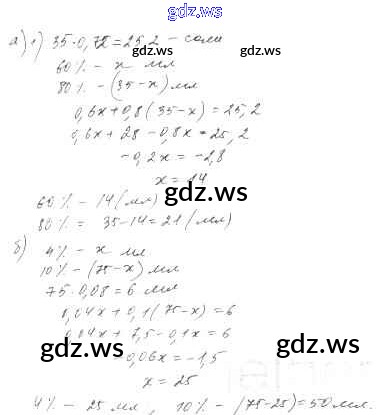 gdz.ws
а) 1) 35·0,72=25,2 – соли
gdz.ws gdz.ws
60% – х мл
80% – (35–х) мл
0,6х+0,8(35–х)=25,2
0,6х+28–0,8х=25,2
–0,2х=–2,8
х=14
gdz.ws
60% – 14 (мл)
80% = 35–14=21 (мл)
б)
4% – х мл
10% – (75–х) мл
75·0,08=6 мл
0,04х+0,1(75–х)=6
0,04х+7,5–0,1х=6
gdz.ws gdz.ws
–0,06х=–1,5
х=25
4% – 25 мл, 10% – (75–25)=50 мл.